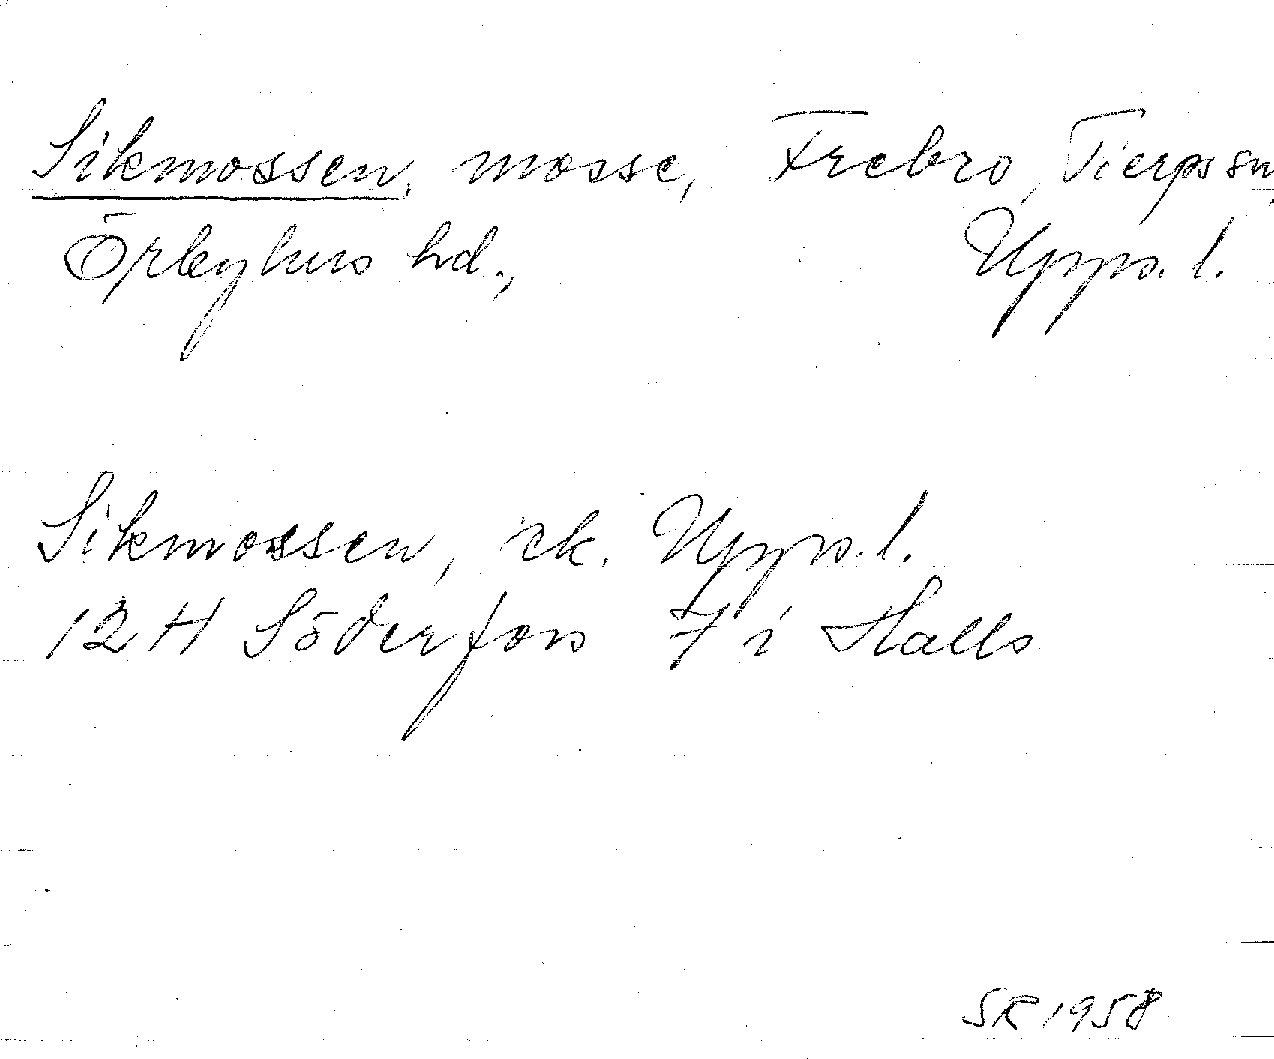 Sikmossen, mosse, Frebro, Tierps sn,
Örbyhus hd., Upps. l.
Sikmossen, ek. Upps. l.
12 H Söderfors 7 i Halls
SR 1958